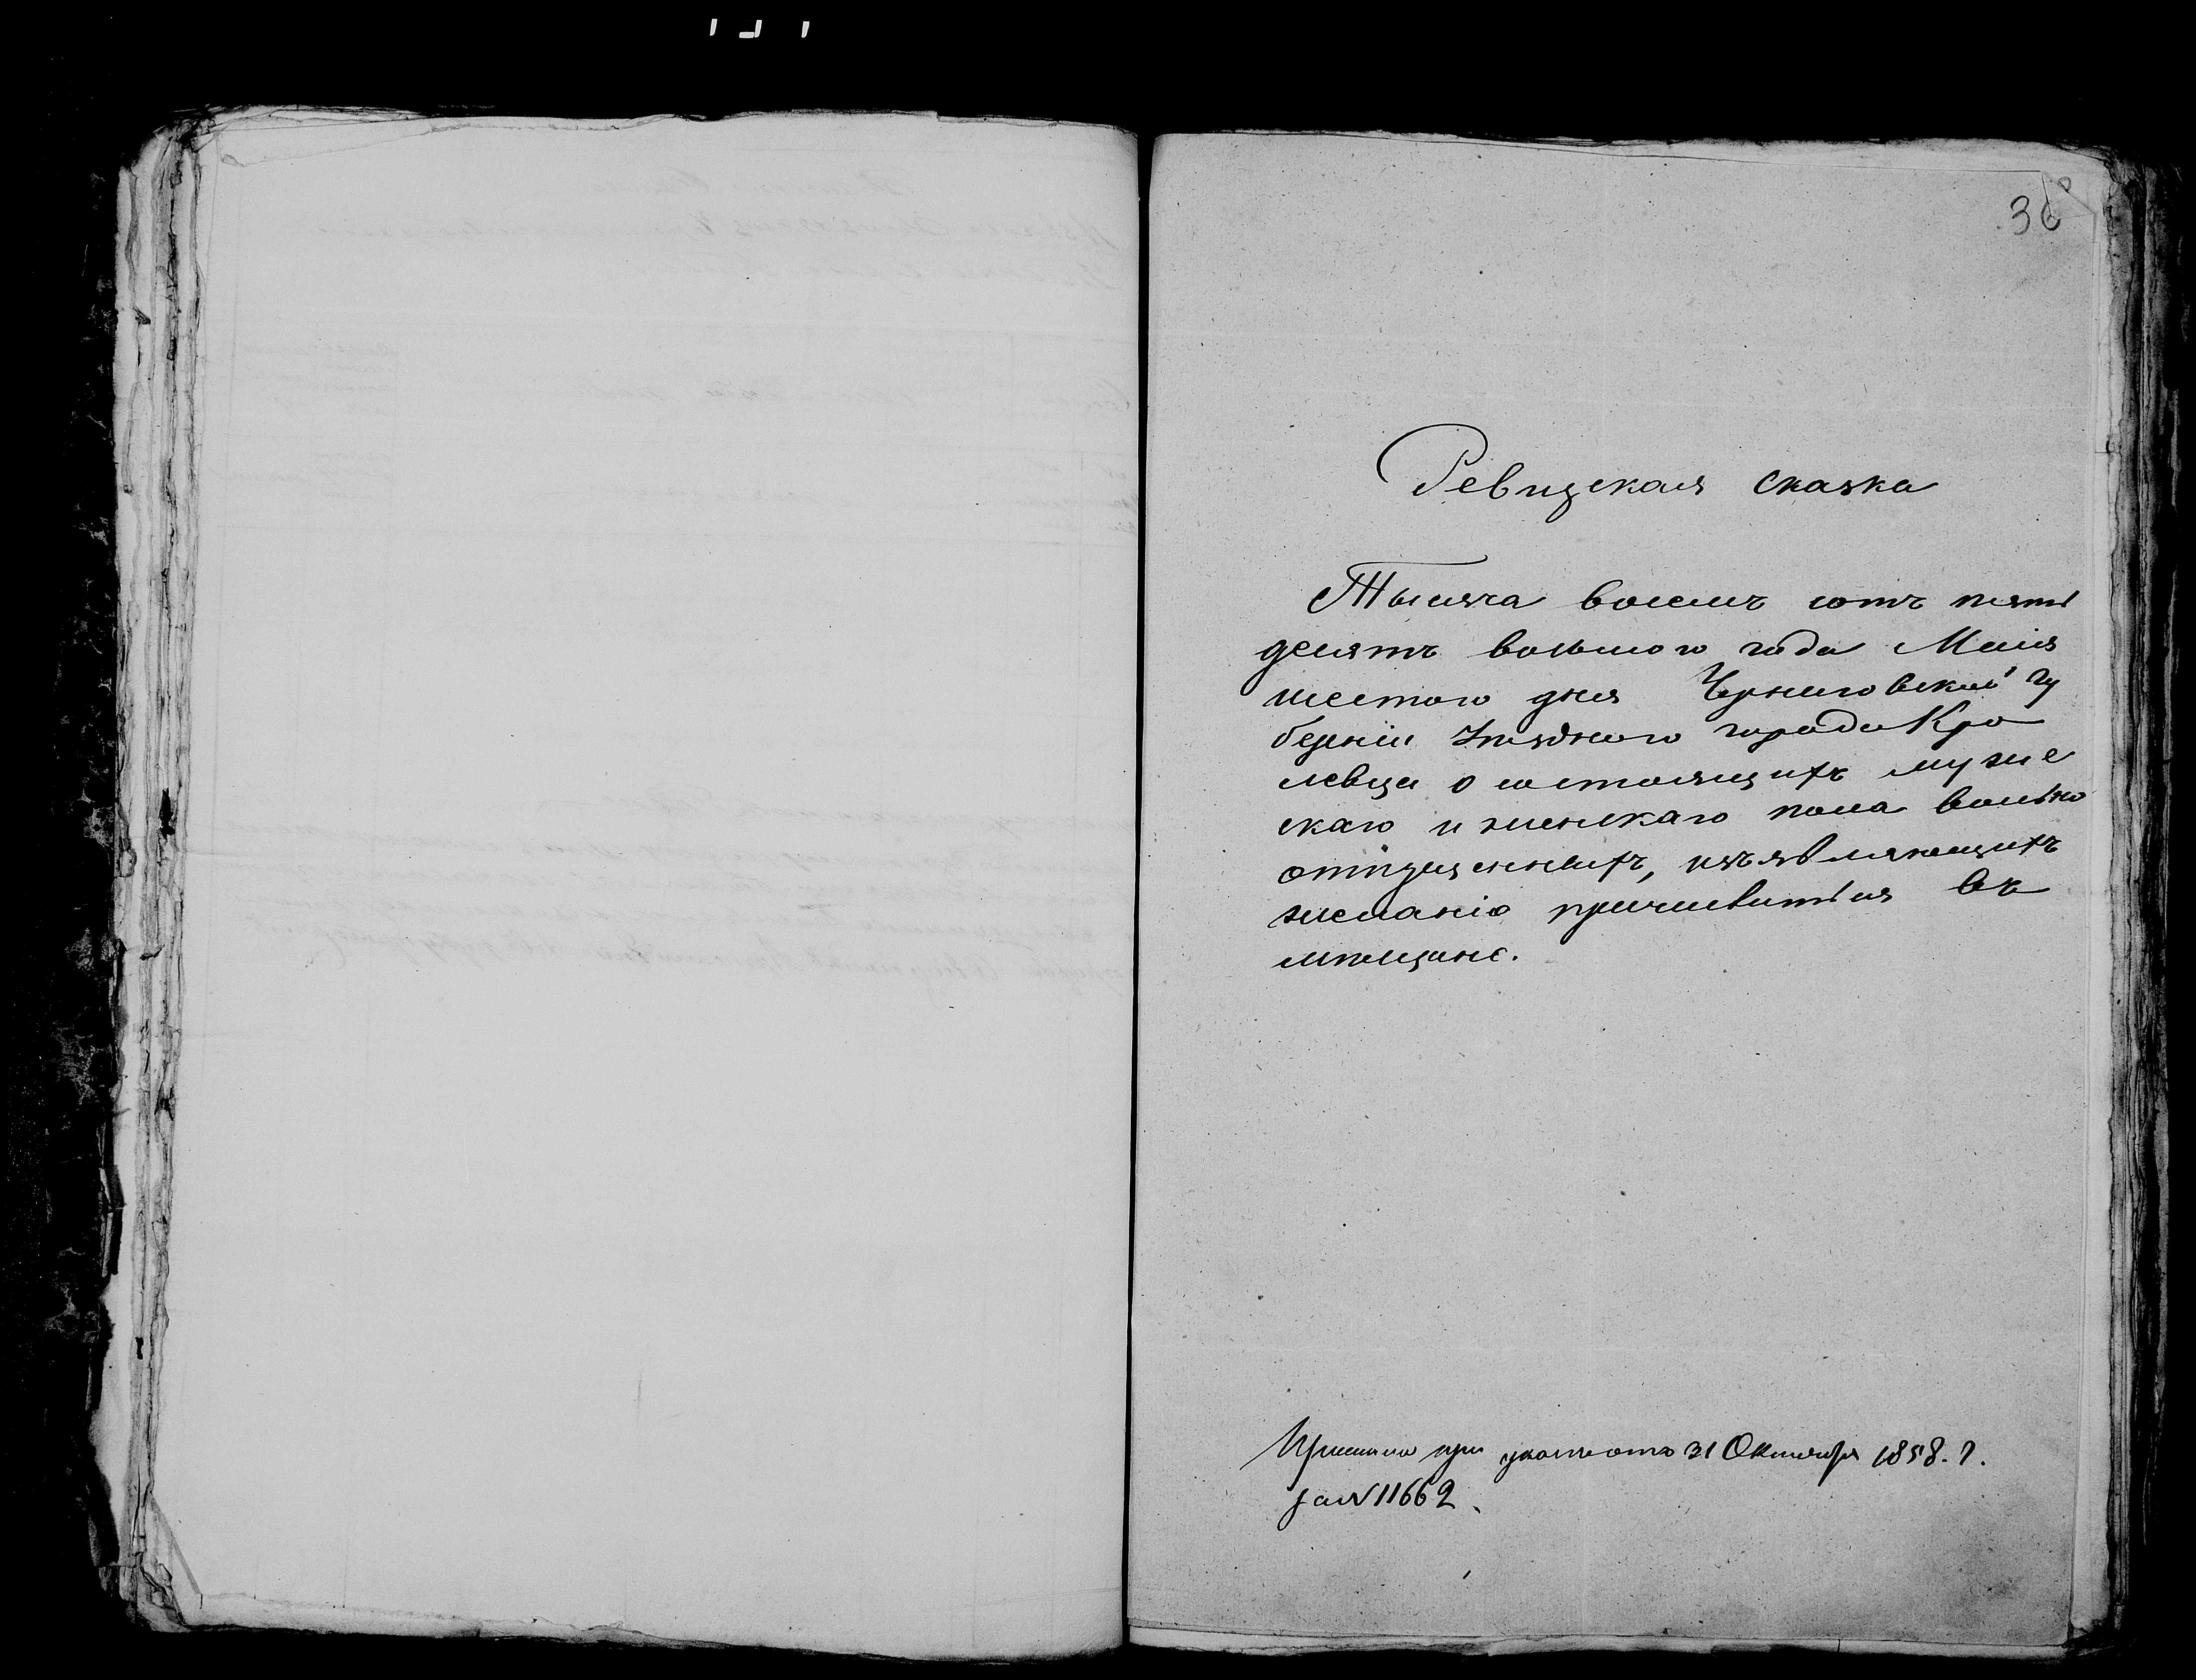 36
Ревизская сказка
Тысяча восемъ сотъ пять
десятъ восьмого года Маія
шестого дня Черниговской гу
берніи Уѣзднаго города Кро
левца о состоящихъ муже
скаго и женскаго пола вольно
отпущенныхъ, изъявляющихъ
желаніе причислиться въ
мѣщане.
при указѣ отъ 31 Октября 1858. г.
за № 11662